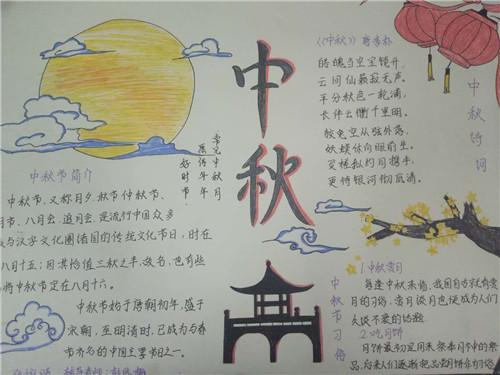 中秋
中秋节简介
中秋节，又称月夕、秋节、仲秋节、
月节、八月会、追月会、是流行中国众多
与汉字文化圈诸国的传统文化节日，时在
八月十五；因其恰值三秋之半，故名，也有些
将中秋节定在八月十六。
中秋节始于唐朝初年，盛于
宋朝，至明清时，已成为与春
节齐名的中国主要节日之一。
常见中秋月
愿年年
好时节
《中秋》 李朴
皓魄当空宝镜升，
云间仙籁寂无声。
平分秋色一轮满，
长伴云衢千里明。
狡兔空从弦外落，
妖蟆休向眼前生。
灵槎拟约同携手，
更待银河彻底清。
中秋诗词
中秋节习俗
1.中秋赏月
每逢中秋来临，我国自古就有赏
月的习俗，赏月谈月也便成为人们
久谈不衰的话题
2.吃月饼
月饼最初是用来祭奉月神的祭
品，后来人们逐渐把品月饼